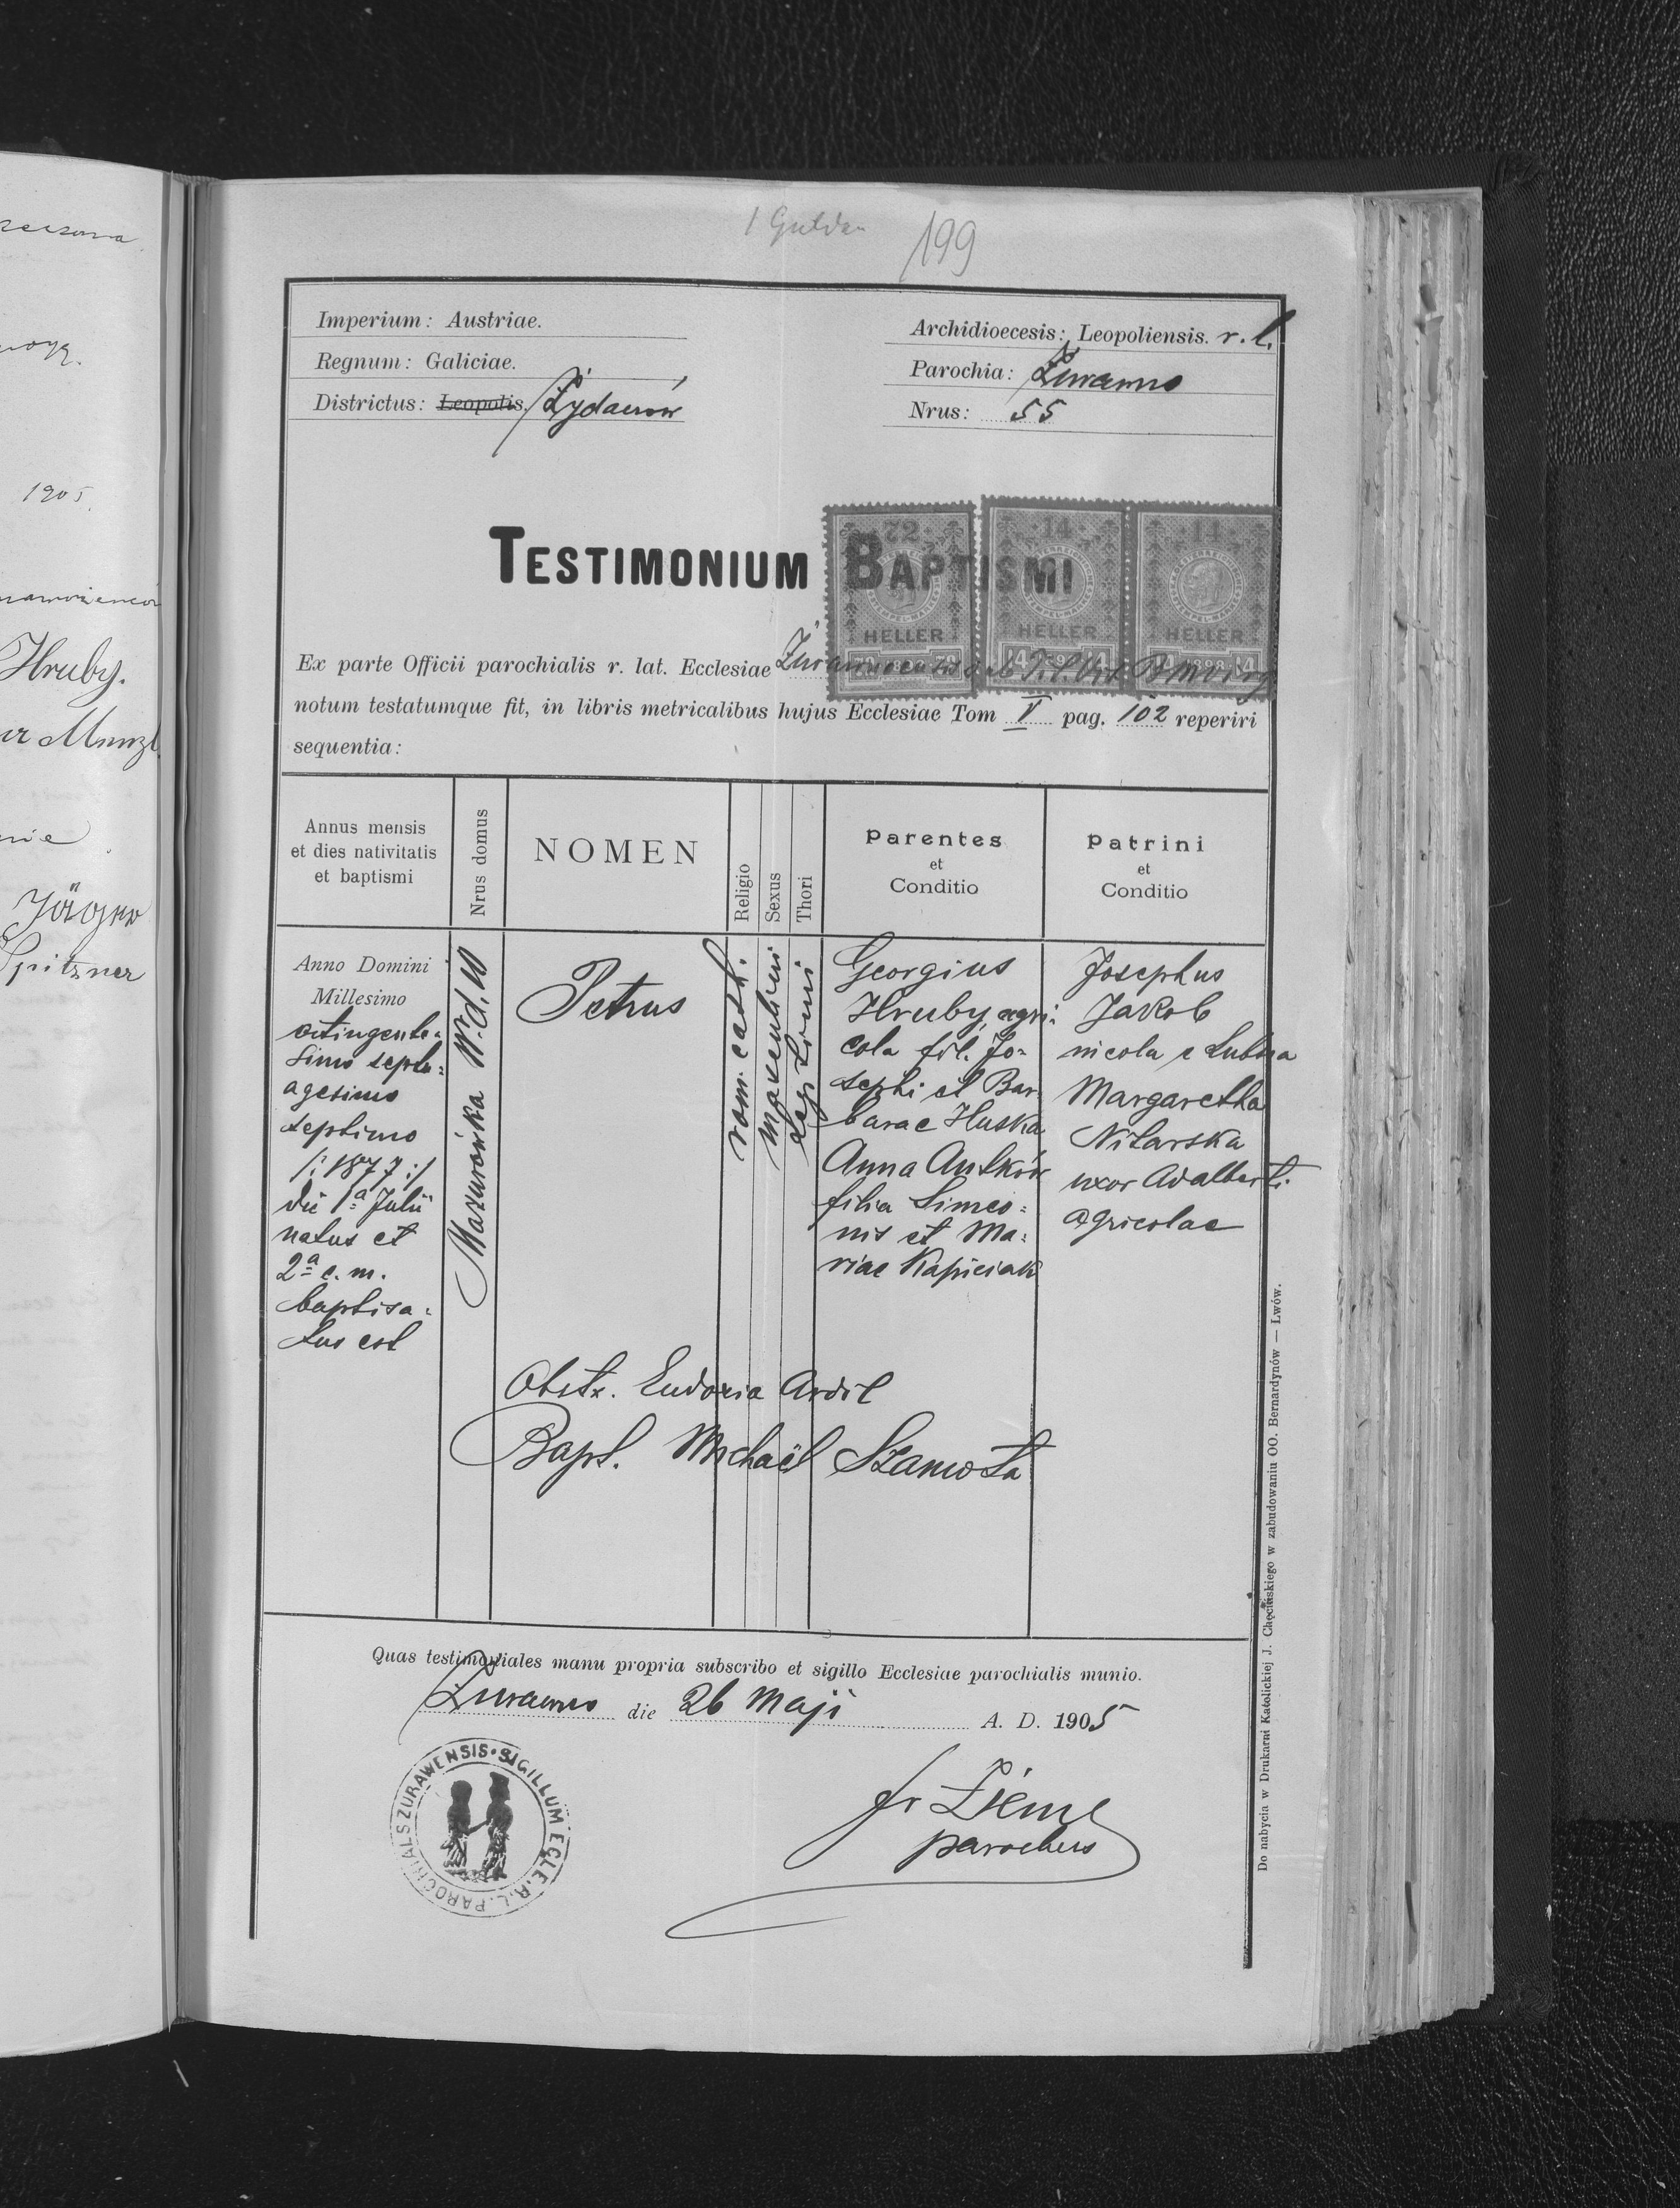 1905
Hruby.
Jäger
Spitzner
1 Gulden
199
Imperium: Austriae.
Regnum: Galiciae.
Districtus: Leopolis. Żydaczów
Archidioecesis: Leopoliensis. r. l.
Parochia: Żurawno
Nrus: 55
TESTIMONIUM BAPTISMI
72 14 14
HELLER HELLER HELLER
Ex parte Officii parochialis r. lat. Ecclesiae
notum testatumque fit, in libris metricalibus hujus Ecclesiae Tom V pag. 102 reperiri
sequentia:
Annus mensis
et dies nativitatis
et baptismi
Nrus domus
NOMEN
Religio
Sexus
Thori
Parentes
et
Conditio
Patrini
et
Conditio
Anno Domini
Millesimo
octingente=
simo septu=
agesimo
septimo
/: 1877 :/
die 1a Julii
natus et
2a e. m.
baptisa=
tus est
Mazurówka N. d. 10
Petrus
rom. cath.
masculini
leg. tori
Georgius
Hruby, agri=
cola fil. Jo=
sephi et Bar
barae Huska
Anna Antków
filia Simeo=
nis et Ma=
riae Kapiciak
Josephus
Jakob
nicola e Lubsza
Margaretha
Nitarska
uxor Adalberti
agricolae
Obstr. Eudoxia Ardil
Bapt. Michaël Szamota
Quas testimoniales manu propria subscribo et sigillo Ecclesiae parochialis munio.
Żurawno die 26 Maji A. D. 1905
parochus
SIGILLUM ECLE. R. L. PAROCHIALS ZURAWENSIS
Do nabycia w Drukarni Katolickiej J. Chęcińskiego w zabudowaniu OO. Bernardynów — Lwów.